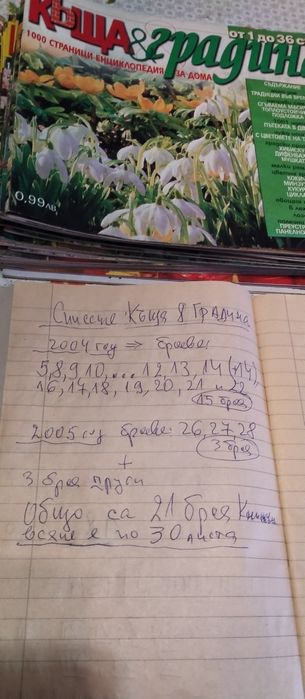 КЪЩА & градина
от 1 до 36 ст
1000 СТРАНИЦИ ЕНЦИКЛОПЕДИЯ ЗА ДОМА
СЪДЪРЖАНИЕ
0.99лв.
Списание Къща & Градина
2004 год => броеве:
5,8,9,10,...12,13,14 (+14),
16,17,18, 19, 20, 21 и 22
15 броя
2005 год броеве: 26,27,28
3 броя
+
3 броя други
Общо са 21 броя
всяко е по 30 листа